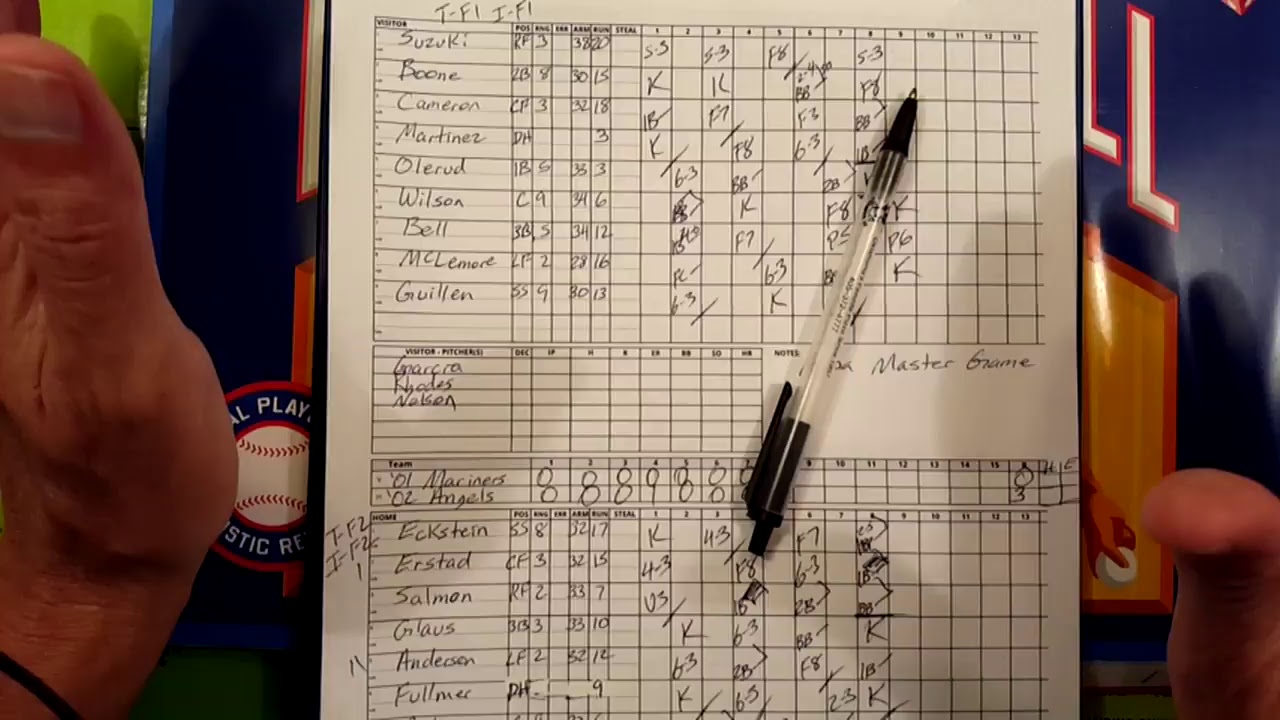 T-F1 I-F1
VISITOR POS RNG ERR ARM RUN STEAL 1 2 3 4 5 6 7 8 9 10 11 12 13
Suzuki RF 3 38 20 5-3 5-3 F8 5-3
Boone 2B 8 30 15 K K BB F8
Cameron CF 3 32 18 1B F7 F3 BB
Martinez DH 3 K F8 6-3 1B
Olerud 1B 5 33 3 6-3 BB 2B
Wilson C 9 34 6 K F8 K
Bell 3B 5 34 12 F7 P6
McLemore LF 2 28 16 FC 63 K
Guillen SS 9 30 13 6-3 K
VISITOR - PITCHER(S) DEC IP H R ER BB SO HR NOTES
Garcia Master Game
Rhodes
Nelson
Team 1 2 3 4 5 6 9 10 11 12 13 14 15 H E
'01 Mariners 0 0 0 0 0 0 0
'02 Angels 0 0 0 1 0 0 3
HOME POS RNG ERR ARM RUN STEAL 1 2 3 4 5 6 7 8 9 10 11 12 13
T-F2
Eckstein SS 8 32 17 K 43 F7
Erstad CF 3 32 15 4-3 F8 6-3 1B
Salmon RF 2 33 7 U3 1B 2B BB
Glaus 3B 3 33 10 K 6-3 BB K
Anderson LF 2 32 12 6-3 2B F8 1B
Fullmer DH 9 K 2-3 K